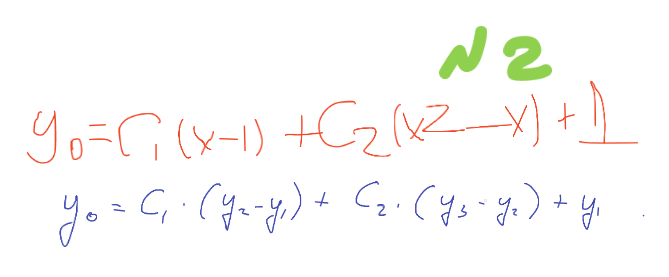 N2
y₀=C₁(x-1)+C₂(x2-x)+1
y₀=C₁·(y₂-y₁)+C₂·(y₃-y₂)+y₁